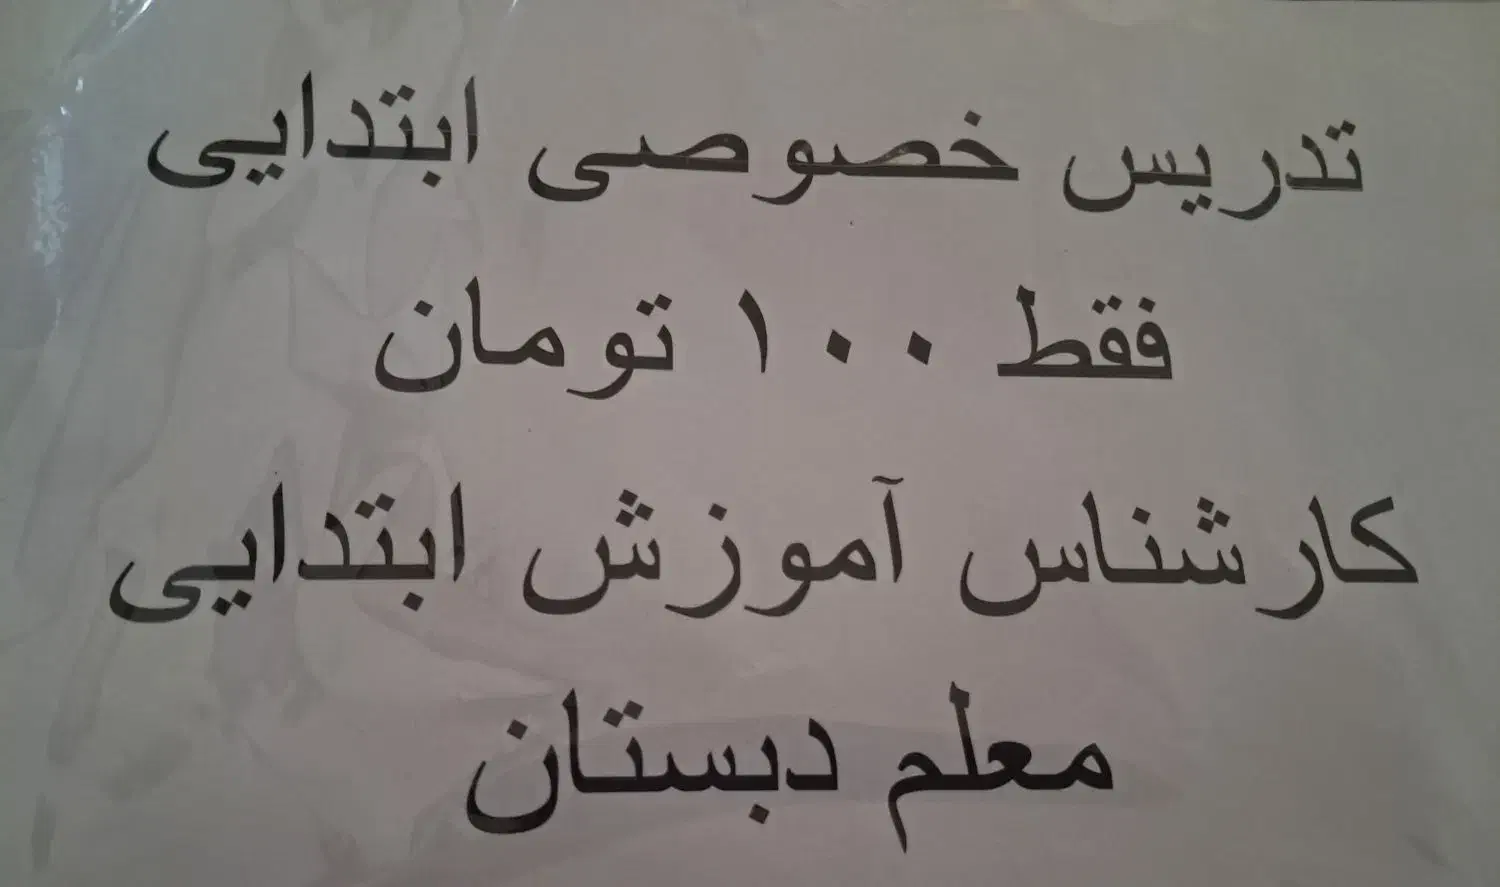 تدریس خصوصی ابتدایی
فقط ۱۰۰ تومان
کارشناس آموزش ابتدایی
معلم دبستان